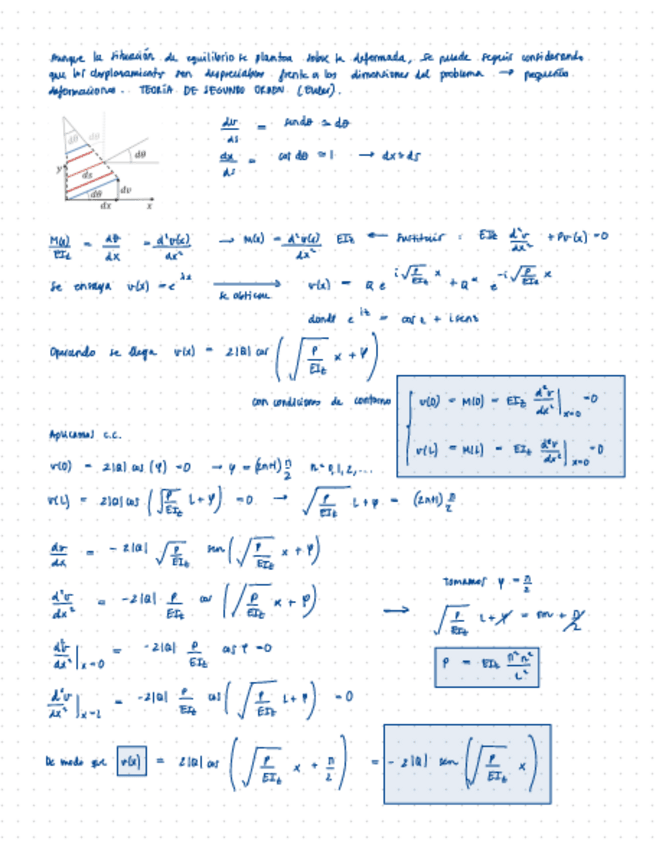 Aunque la situación de equilibrio se plantea sobre la deformada, se puede seguir considerando
que los desplazamientos son despreciables frente a las dimensiones del problema → pequeñas
deformaciones. TEORÍA DE SEGUNDO ORDEN (Euler).
dv/ds = sen dθ ≃ dθ
dx/ds = cos dθ ≃ 1 → dx ≃ ds
dθ dθ
dθ
y dx
dθ dv
dx x
M(x)/EI_z = dθ/dx = d²v(x)/dx² → M(x) = d²v(x)/dx² EI_z ← sustituir : EI_z d²v/dx² + Pv(x) = 0
Se ensaya v(x) = e^{λx} → se obtiene v(x) = a e^{i√(P/EI_z) x} + a* e^{-i√(P/EI_z) x}
donde e^{iz} = cos z + i sen z
Operando se llega v(x) = 2|a| cos (√(P/EI_z) x + φ)
con condiciones de contorno { v(0) = M(0) = EI_z d²v/dx²|_{x=0} = 0
v(L) = M(L) = EI_z d²v/dx²|_{x=0} = 0
Aplicamos c.c.
v(0) = 2|a| cos (φ) = 0 → φ = (2n+1) π/2 n = 0, 1, 2, ...
v(L) = 2|a| cos (√(P/EI_z) L + φ) = 0 → √(P/EI_z) L + φ = (2n+1) π/2
dv/dx = - 2|a| √(P/EI_z) sen (√(P/EI_z) x + φ)
d²v/dx² = -2|a| P/EI_z cos (√(P/EI_z) x + φ) →
Tomamos φ = π/2
√(P/EI_z) L + φ = πn + π/2
d²v/dx²|_{x=0} = -2|a| P/EI_z cos φ = 0
P = EI_z n²π²/L²
d²v/dx²|_{x=L} = -2|a| P/EI_z cos (√(P/EI_z) L + φ) = 0
De modo que v(x) = 2|a| cos (√(P/EI_z) x + π/2) = - 2|a| sen (√(P/EI_z) x)